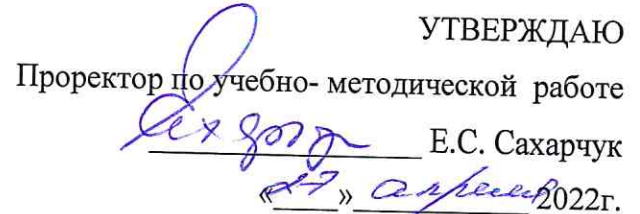 УТВЕРЖДАЮ
Проректор по учебно- методической работе
Е.С. Сахарчук
«27» апреля 2022г.